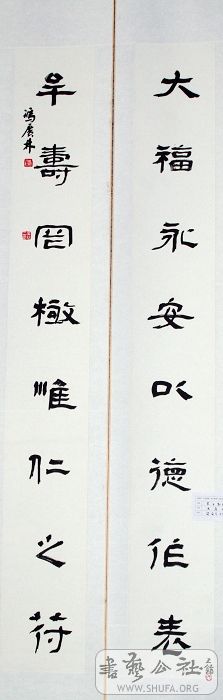 大福永安以德作表
壽罔極惟仁之符
書藝公社
WWW.SHUFA.ORG